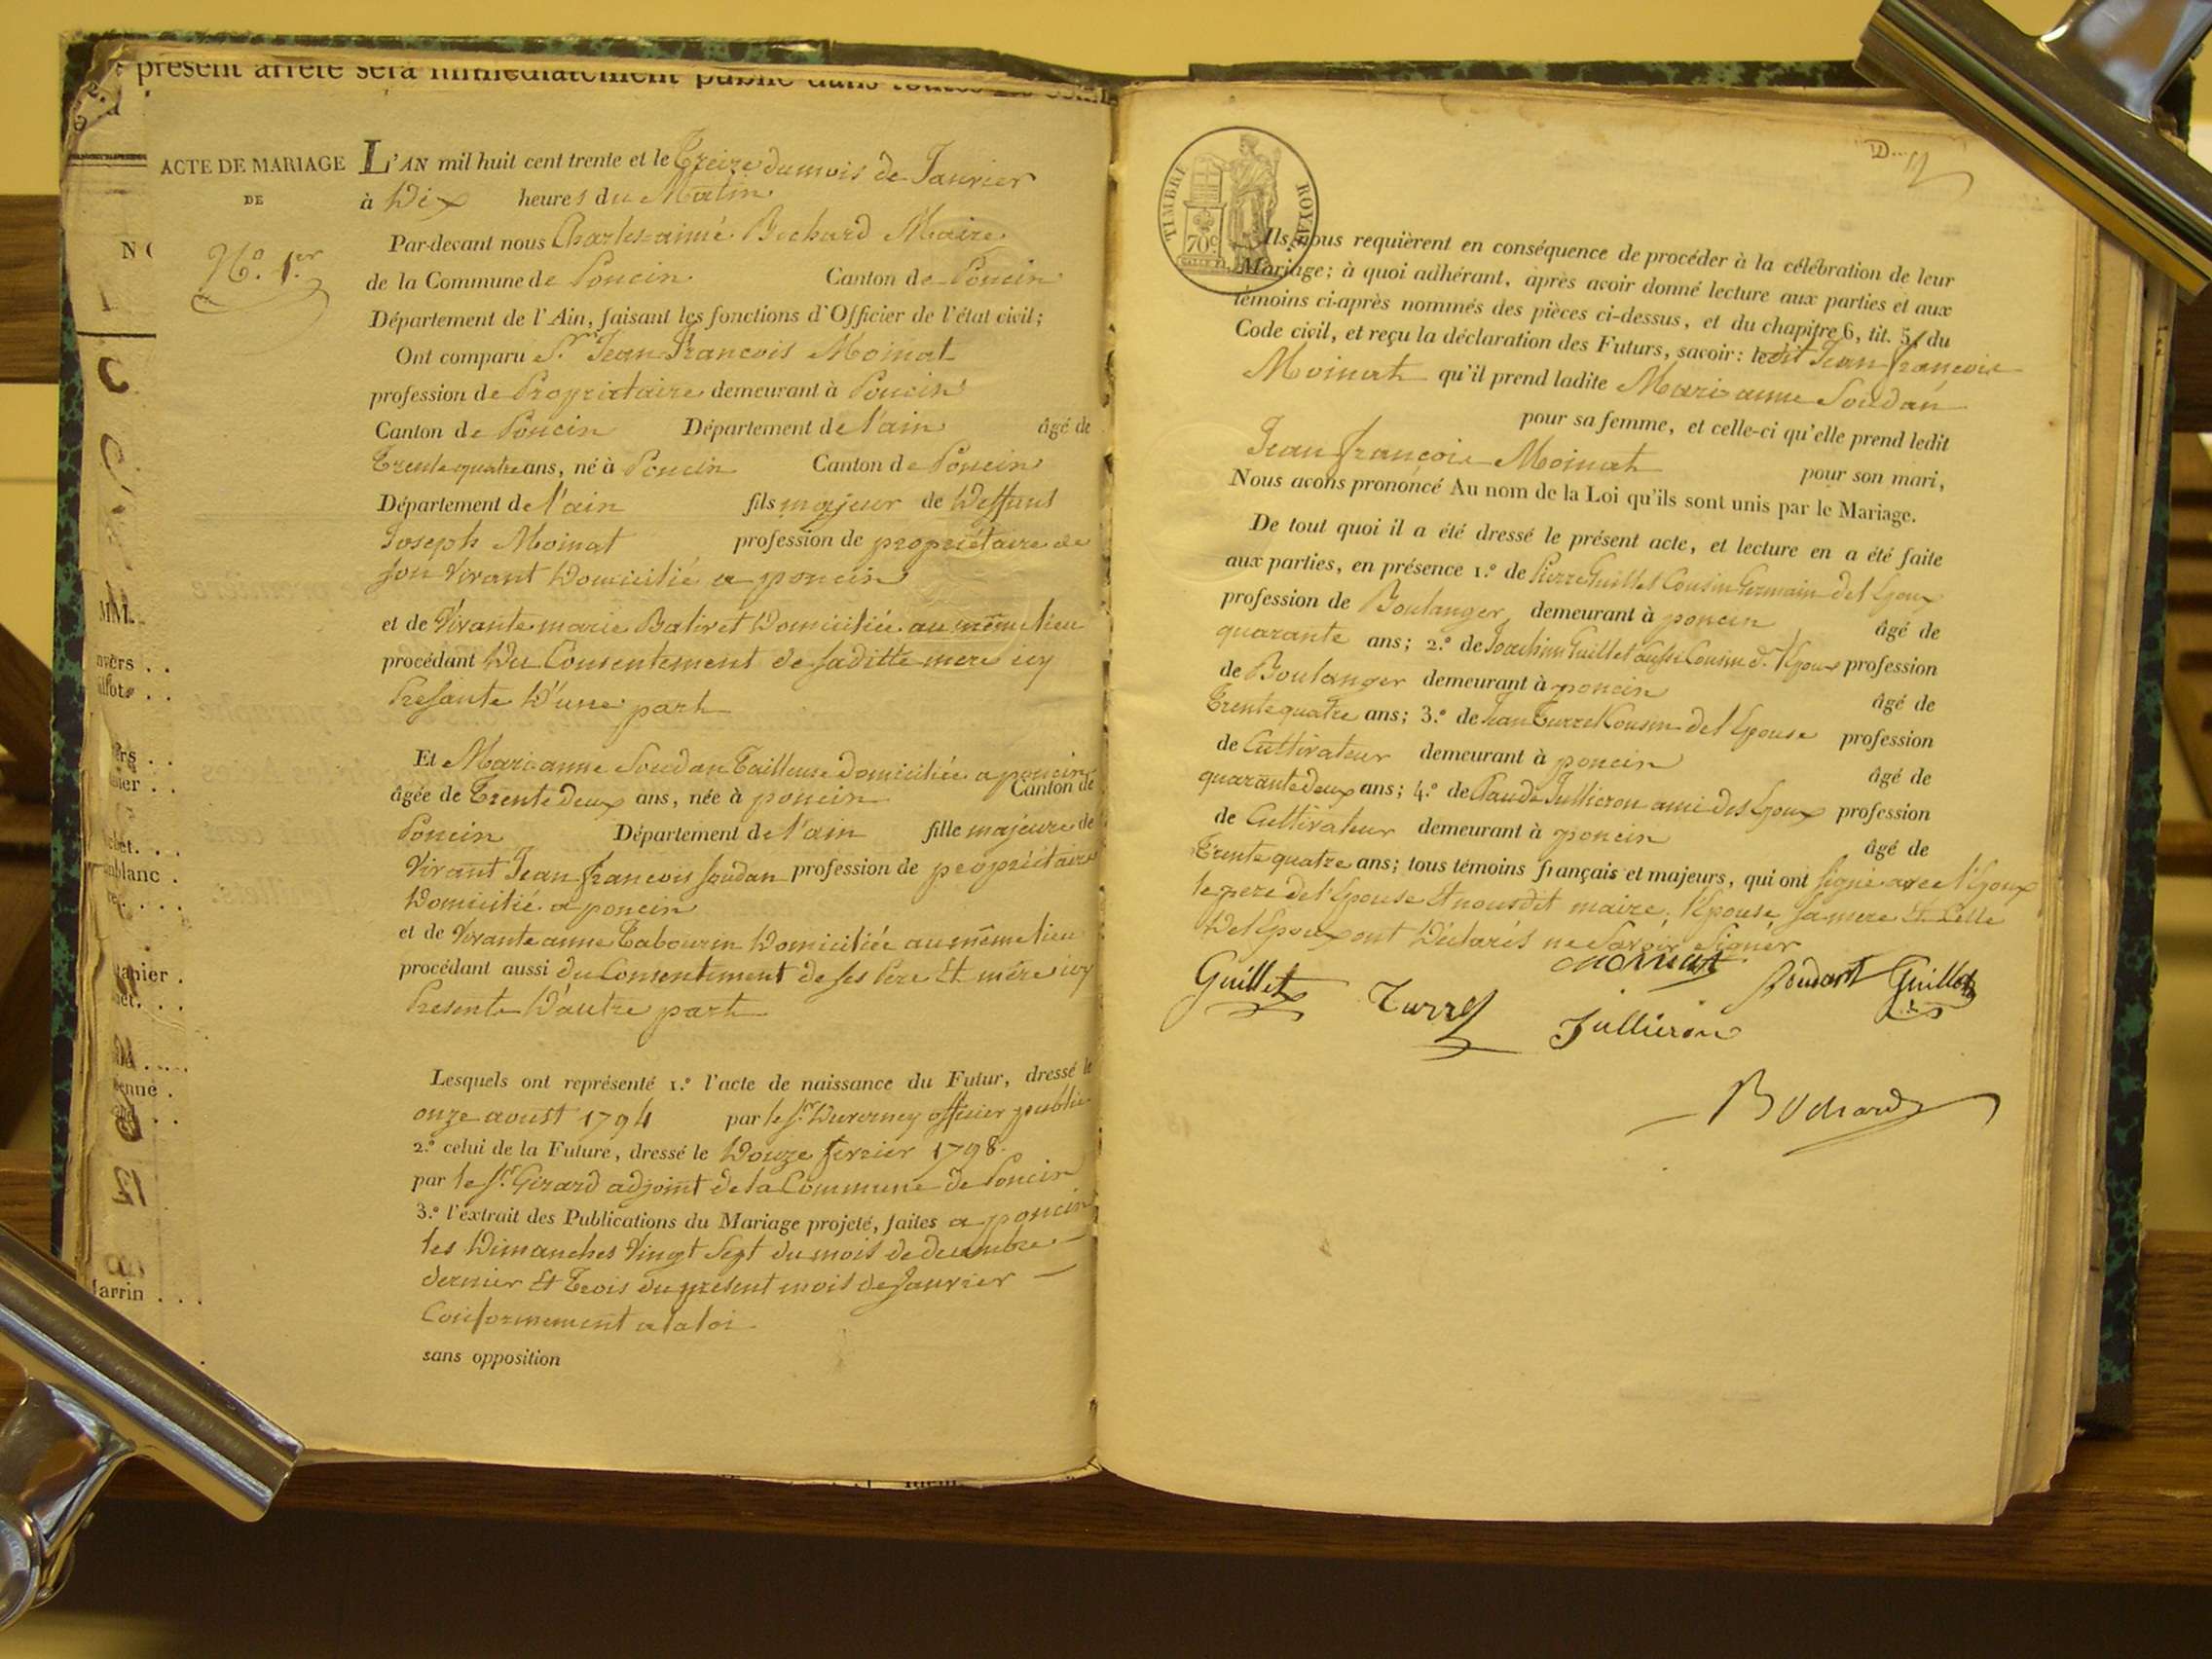 présent arrêté sera immédiatement publié dans toutes
ACTE DE MARIAGE
DE
N.º 1.er
L'AN mil huit cent trente et le Treize du mois de Janvier
à Dix heures du Matin
Par-devant nous Charles-aimé Bochard Maire
de la Commune de Poncin Canton de Poncin
Département de l'Ain, faisant les fonctions d'Officier de l'état civil;
Ont comparu Sr. Jean François Moinat
profession de Propriétaire demeurant à Poncin
Canton de Poncin Département de l'ain âgé de
Trente quatre ans, né à Poncin Canton de Poncin
Département de l'ain fils majeur de Deffunt
Joseph Moinat profession de propriétaire de
son vivant Domicilié a poncin
et de Vivante marie Bativet Domiciliée au même lieu
procédant Du Consentement de saditte mere icy
Presante D'une part
Et Marianne Soudan Tailleuse domiciliée a poncin
âgée de Trente Deux ans, née à poncin Canton de
Poncin Département de l'ain fille majeure de
Vivant Jean françois soudan profession de propriétaire
Domicilié a poncin
et de Vivante anne Tabourin Domiciliée au même lieu
procédant aussi du Consentement de ses Père Et mére icy
Presente D'autre part
Lesquels ont représenté 1.º l'acte de naissance du Futur, dressé le
onze aoust 1794 par le Sr. Duverney officier public
2.º celui de la Future, dressé le Douze fevrier 1798
par le Sr. Girard adjoint de la Commune de Poncin
3.º l'extrait des Publications du Mariage projeté, faites a poncin
les Dimanches Vingt Sept du mois de decembre
dernier Et Trois du present mois de Janvier
Conformement a la loi
sans opposition
TIMBRE ROYAL
70c
Ils nous requièrent en conséquence de procéder à la célébration de leur
Mariage; à quoi adhérant, après avoir donné lecture aux parties et aux
témoins ci-après nommés des pièces ci-dessus, et du chapitre 6, tit. 5, du
Code civil, et reçu la déclaration des Futurs, savoir: ledit Jean françois
Moinat qu'il prend ladite Marianne Soudan
pour sa femme, et celle-ci qu'elle prend ledit
Jean françois Moinat pour son mari,
Nous avons prononcé Au nom de la Loi qu'ils sont unis par le Mariage.
De tout quoi il a été dressé le présent acte, et lecture en a été faite
aux parties, en présence 1.º de Pierre Guillet Cousin Germain de l'Epoux
profession de Boulanger demeurant à poncin âgé de
quarante ans; 2.º de Joachim Guillet aussi Cousin d. l'Epoux profession
de Boulanger demeurant à poncin âgé de
Trente quatre ans; 3.º de Jean Turrel Cousin de l'Epouse profession
de Cultivateur demeurant à poncin âgé de
quarante deux ans; 4.º de Claude Jullieron ami des Epoux profession
de Cultivateur demeurant à poncin âgé de
Trente quatre ans; tous témoins français et majeurs, qui ont signé avec l'Epoux
le pere de l'Epouse Et nousdit maire, l'Epouse, sa mere Et Celle
De l'Epoux ont Déclarés ne Savoir Signer
Guillet Turrel Moinat Soudant Guillet
Jullieron
Bochard